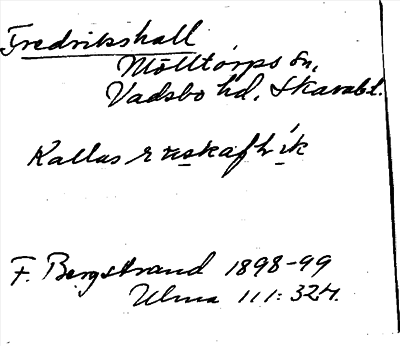 Fredrikshall
Mölltorps sn,
Vadsbo hd, Skarabl.
Kallas
F. Bergstrand 1898-99
Ulma 111:324.